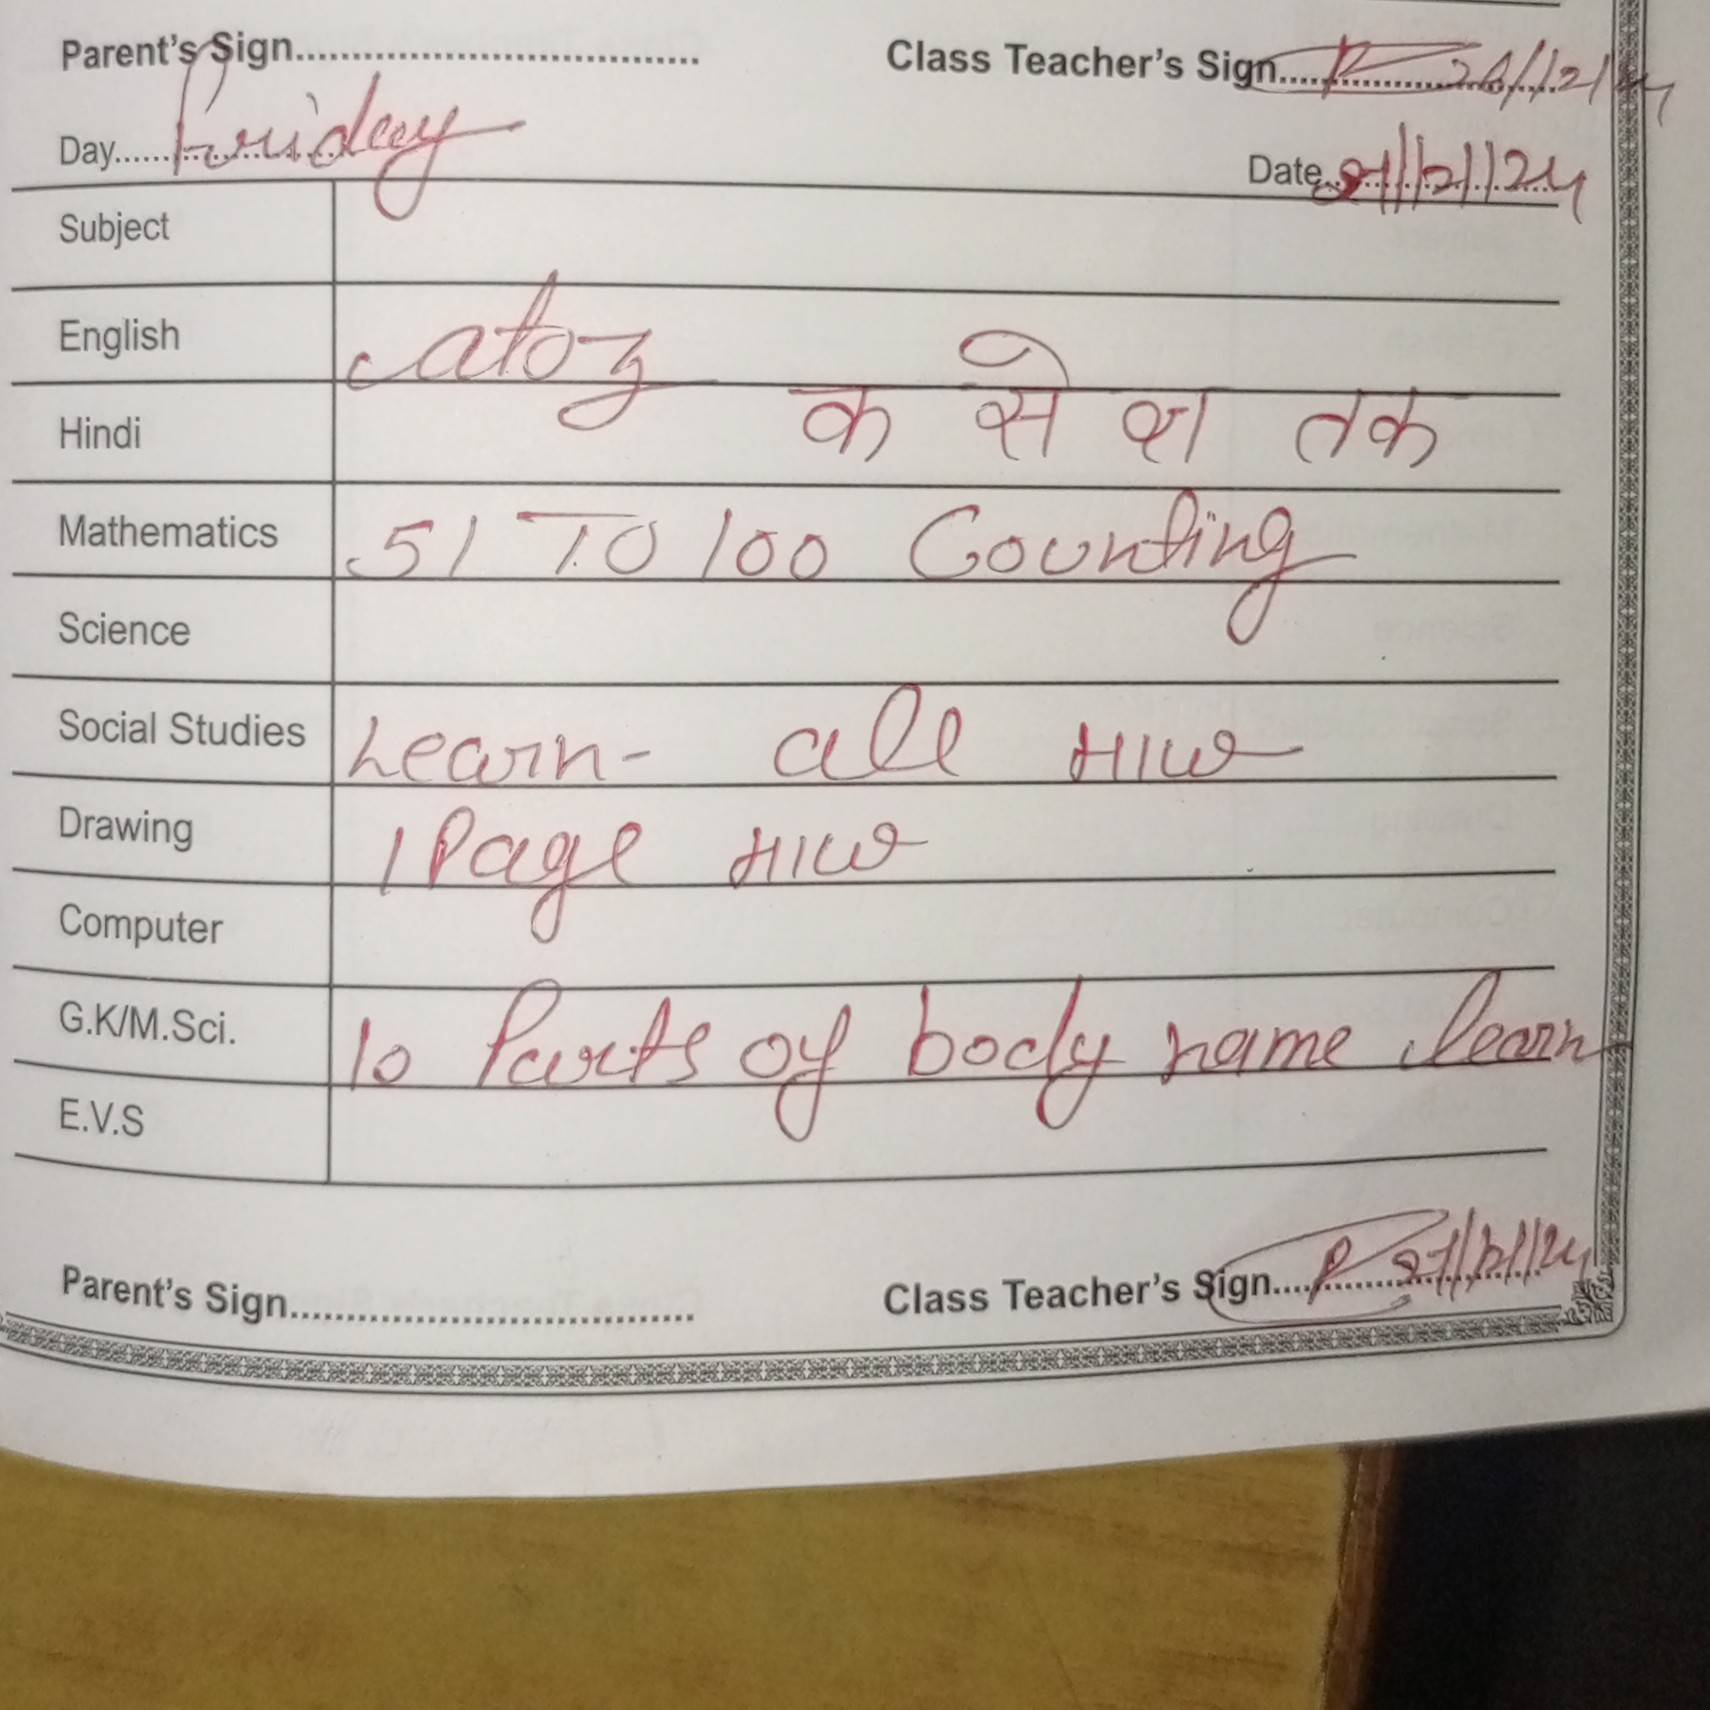 Parent's Sign.................................. Class Teacher's Sign.................... 26/12/24
Day...... Friday Date.. 27/12/24
Subject
English a to z
Hindi क से श तक
Mathematics 51 TO 100 Counting
Science
Social Studies Learn- all H/W
Drawing 1 Page H/W
Computer
G.K/M.Sci. 10 Parts of body name learn
E.V.S
Parent's Sign.................................. Class Teacher's Sign.................... 27/12/24